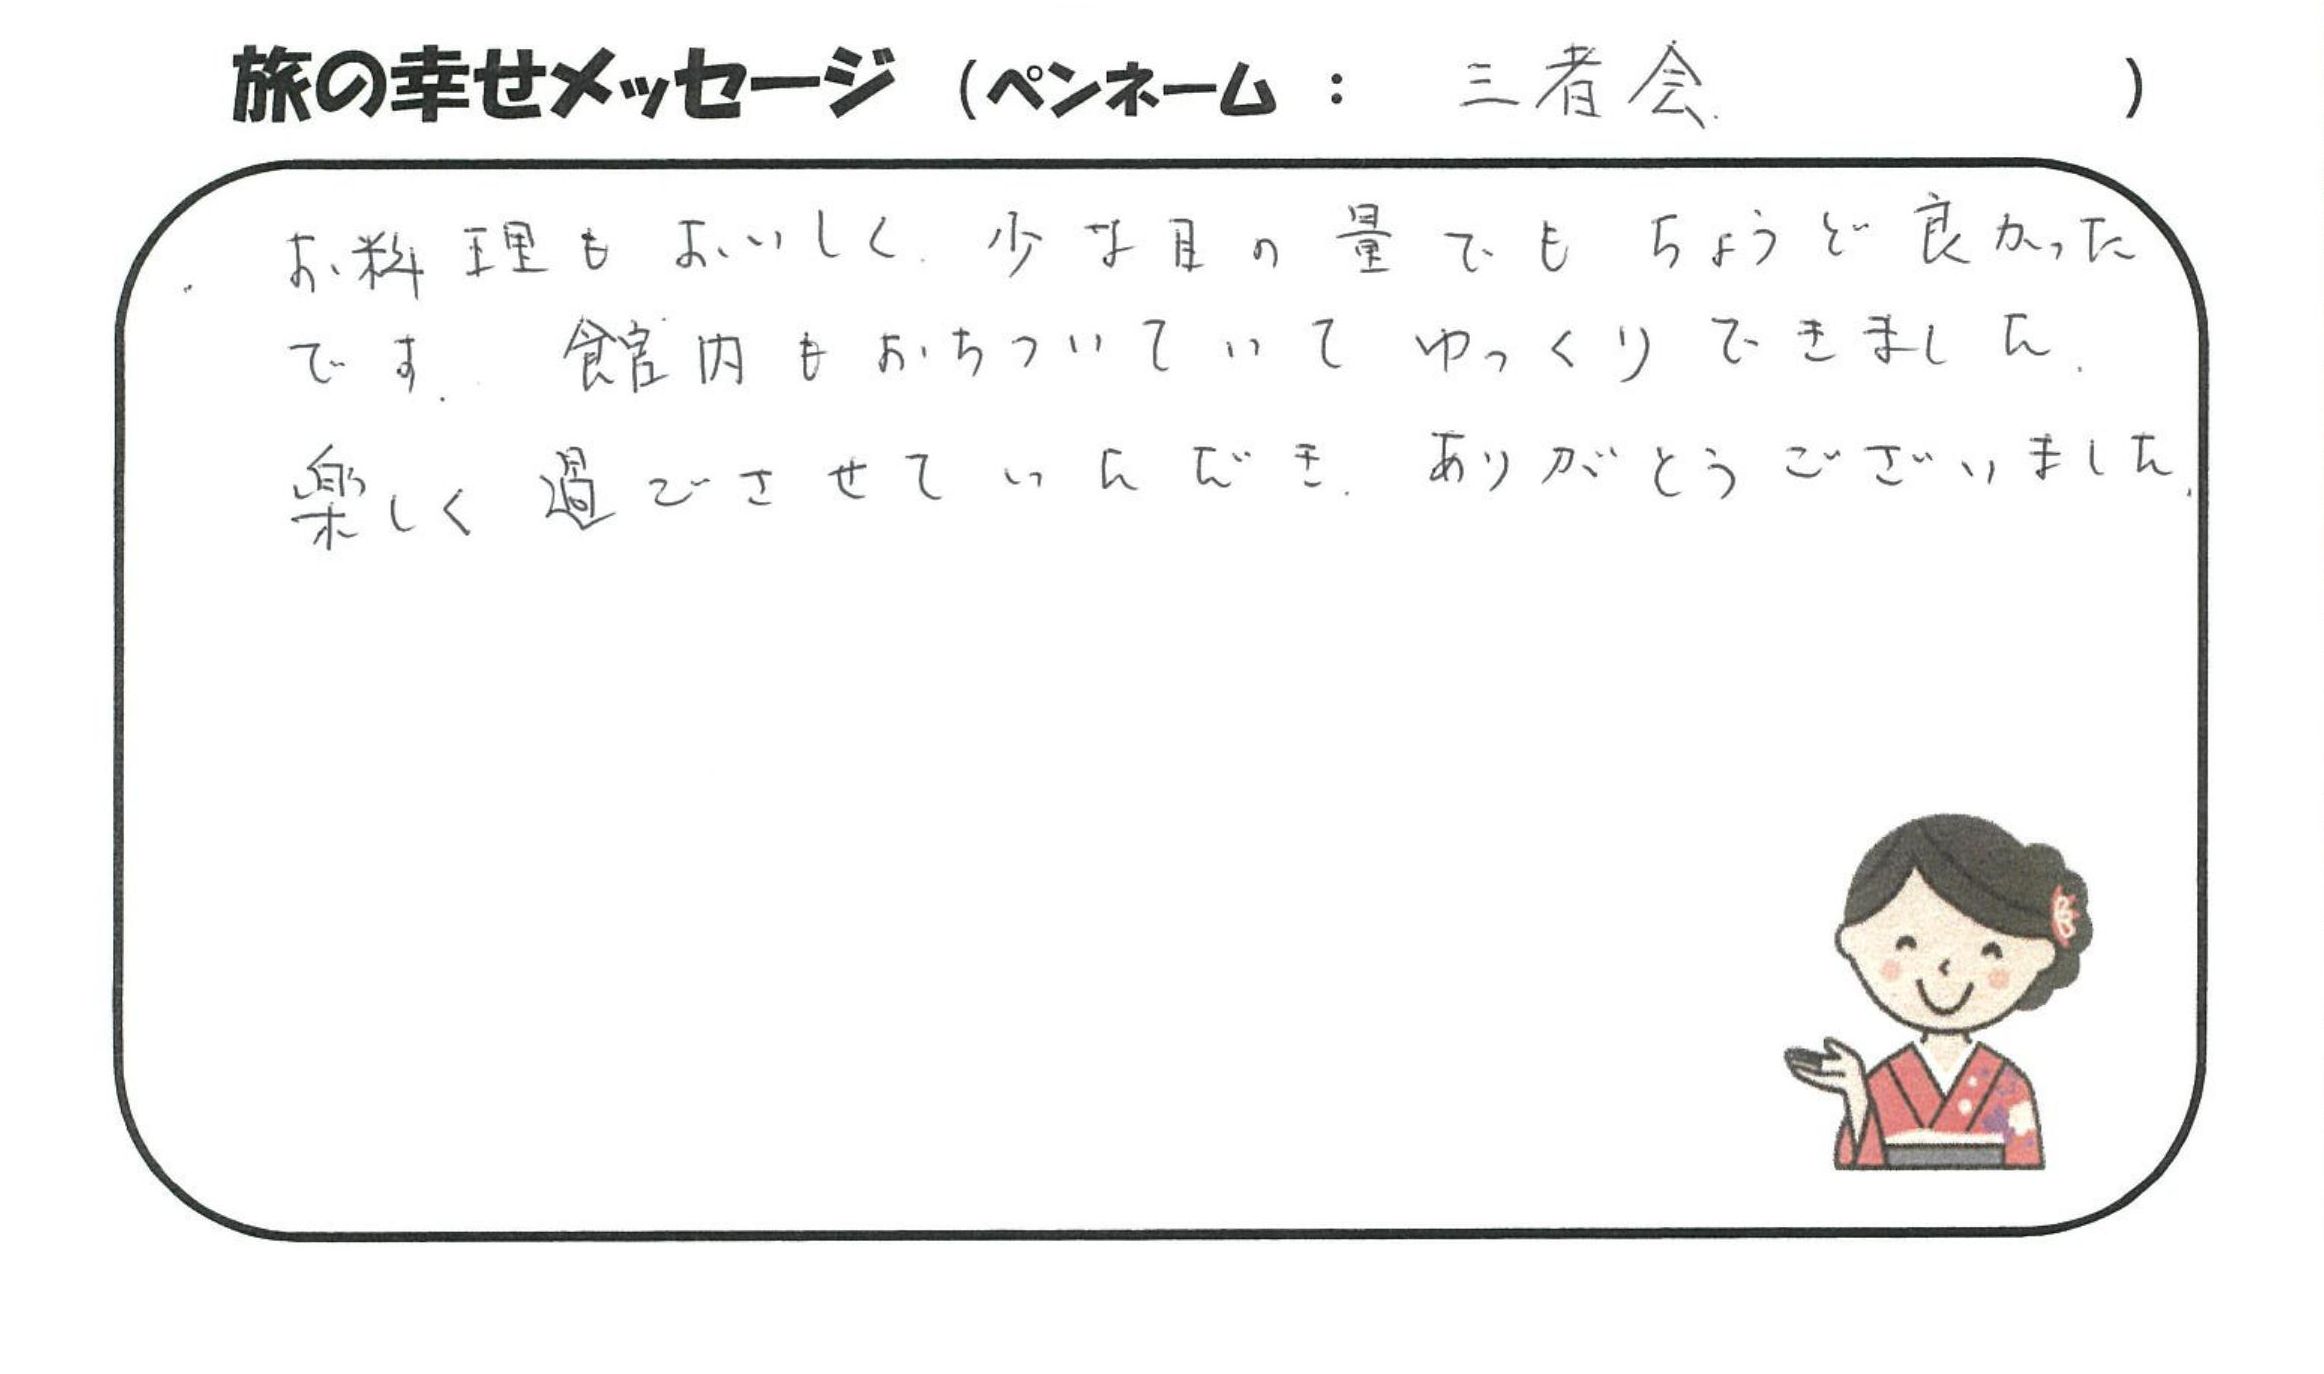 旅の幸せメッセージ (ペンネーム : 三者会.)
お料理もおいしく. 少な目の量でもちょうど良かった
です. 館内もおちついていてゆっくりできました.
楽しく過ごさせていただき. ありがとうございました.